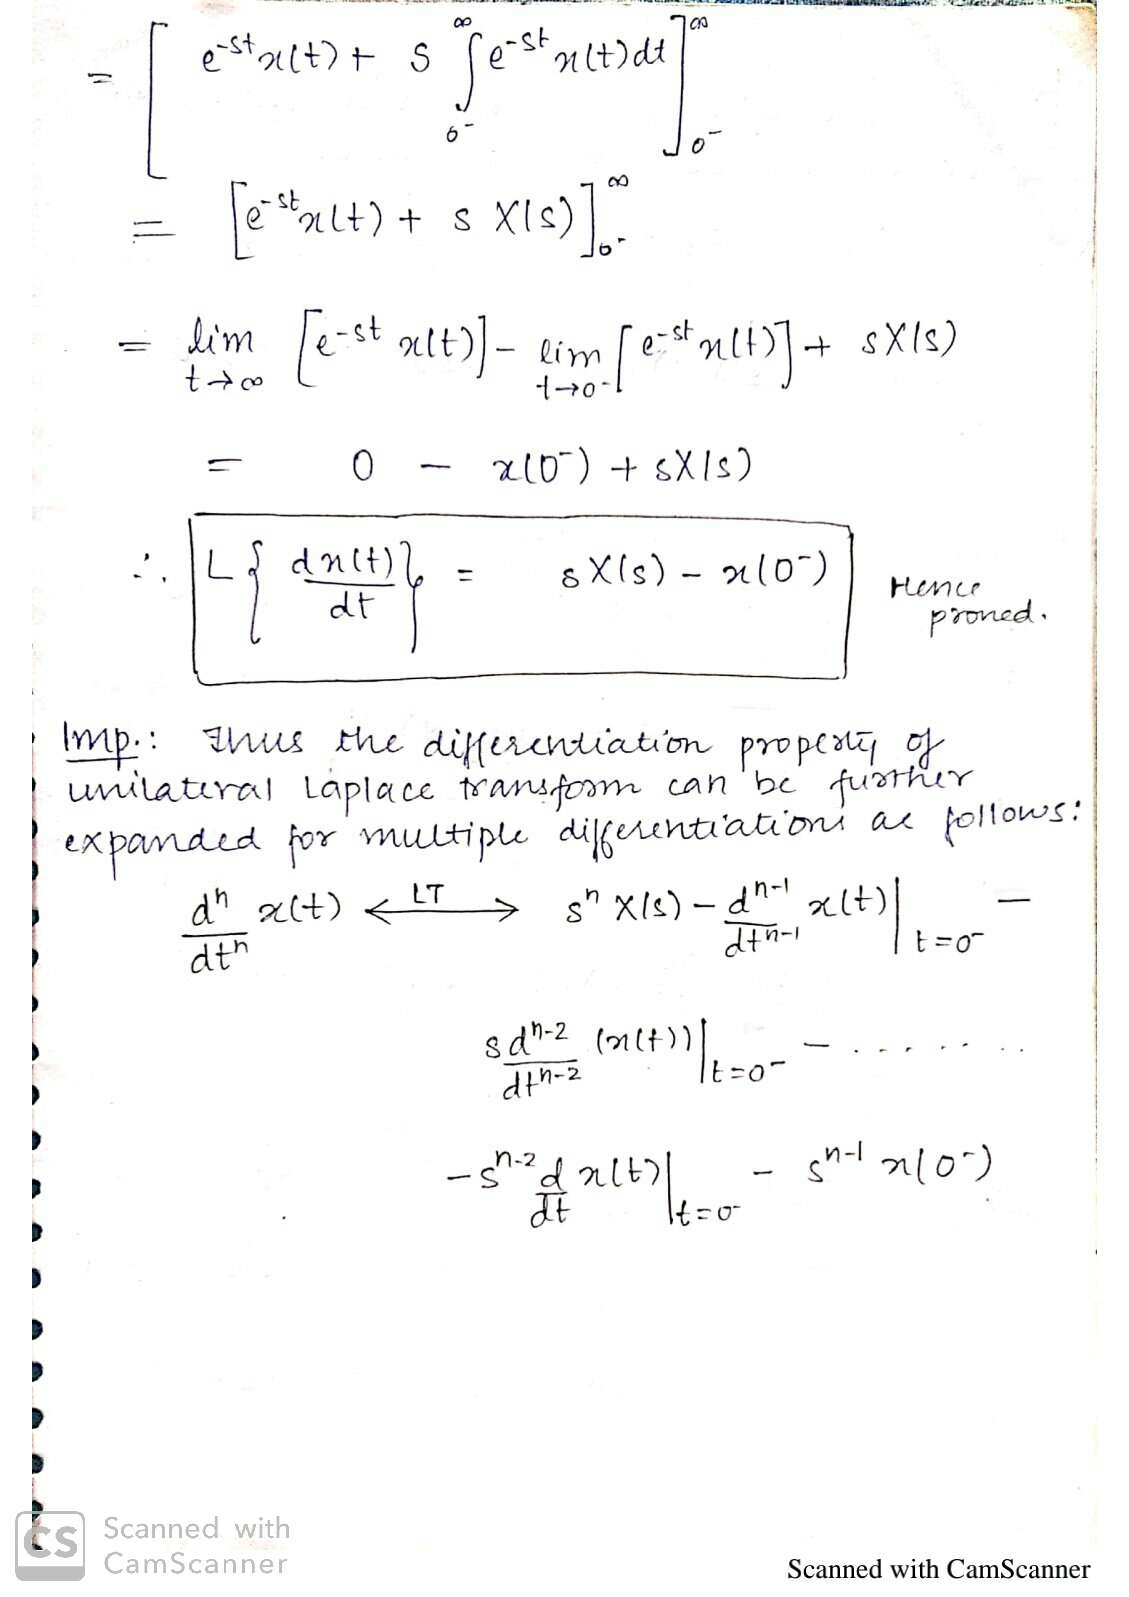 = [ e^{-st} x(t) + s ∫_{0^-}^{∞} e^{-st} x(t) dt ]_{0^-}^{∞}
= [ e^{-st} x(t) + s X(s) ]_{0^-}^{∞}
= lim_{t→∞} [ e^{-st} x(t) ] - lim_{t→0^-} [ e^{-st} x(t) ] + sX(s)
= 0 - x(0^-) + sX(s)
∴ L { dx(t)/dt } = sX(s) - x(0^-) Hence
proved.
Imp.: Thus the differentiation property of
unilateral Laplace transform can be further
expanded for multiple differentiations as follows:
d^n/dt^n x(t) <—LT—> s^n X(s) - d^{n-1}/dt^{n-1} x(t) |_{t=0^-} -
s d^{n-2}/dt^{n-2} (x(t)) |_{t=0^-} - ........
- s^{n-2} d/dt x(t) |_{t=0^-} - s^{n-1} x(0^-)
CS Scanned with
CamScanner
Scanned with CamScanner